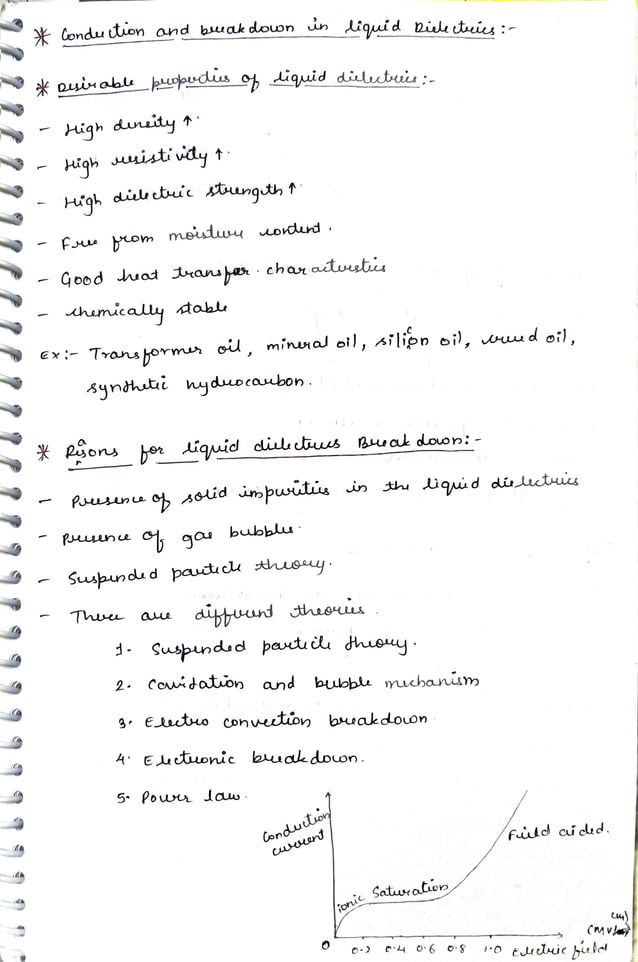 * Conduction and breakdown in liquid Dielectrics:-
* Desirable properties of liquid dielectrics:-
- High density ↑.
- High resistivity ↑.
- High dielectric strength ↑.
- Free from moisture content.
- Good heat transfer characteristics
- chemically stable
Ex:- Transformer oil, mineral oil, silicon oil, crued oil,
synthetic hydrocarbon.
* Rasons for liquid dielectrics Breakdown:-
- Presence of solid impurities in the liquid dielectrics
- presence of gas bubbles.
- Suspended particle theory.
- There are different theories.
1. Suspended particle theory.
2. Cavidation and bubble mechanism
3. Electro convection breakdown
4. Electronic breakdown.
5. Power law.
Conduction
current
Field aided.
ionic Saturation
cm)
(MV/
0 0.2 0.4 0.6 0.8 1.0 Electric field